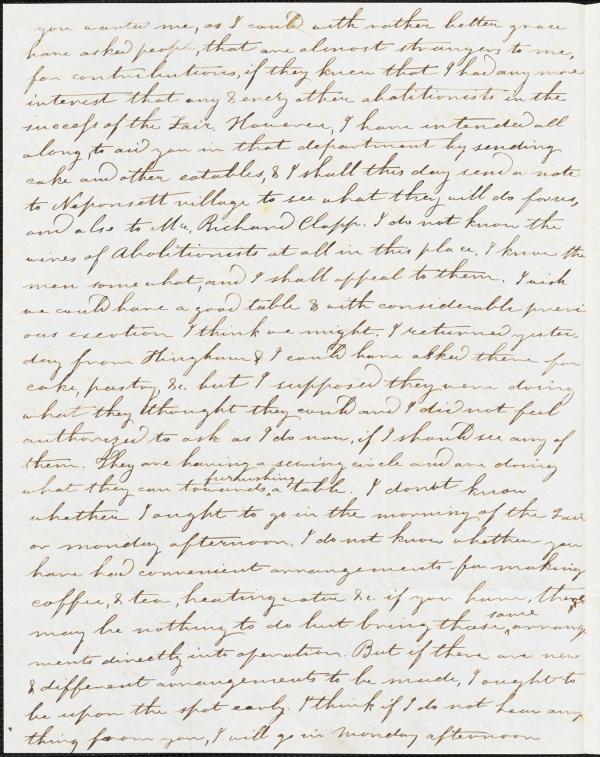 you wanted me, as I could with rather better grace
have asked people, that are almost strangers to me,
for contributions, if they knew that I had any more
interest that any & every other abolitionists in the
success of the Fair. However, I have intended all
along, to aid you in that department by sending
cake and other eatables, & I shall this day send a note
to Neponsett village to see what they will do for us,
and also to Mr. Richard Clapp. I do not know the
wives of Abolitionists at all in this place. I know the
men somewhat and I shall appeal to them. I wish
we could have a good table & with considerable previ-
ous exertion I think we might. I returned yester-
day from Hingham & I could have asked there for
cake, pastry, &c. but I supposed they were doing
what they thought they could and I did not feel
authorized to ask as I do now, if I should see any of
them. They are having a sewing circle and are doing
what they can towards furnishing a table. I do not know
whether I ought to go in the morning of the Fair
or monday afternoon. I do not know whether you
have had convenient arrangements for making
coffee, & tea, heating water &c. if you have, there
may be nothing to do but bring those same arrange
ments directly into operation. But if there are new
& different arrangements to be made, I ought to
be upon the spot early. I think if I do not hear any
thing from you, I will go in monday afternoon